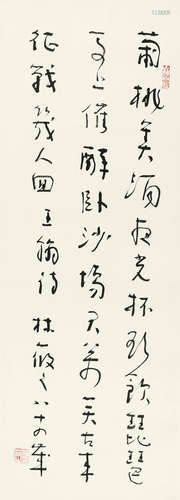 蒲桃美酒夜光杯欲飲琵琶
馬上催醉卧沙場君莫笑古來
征戰幾人回王翰詩林筱之八十四歲